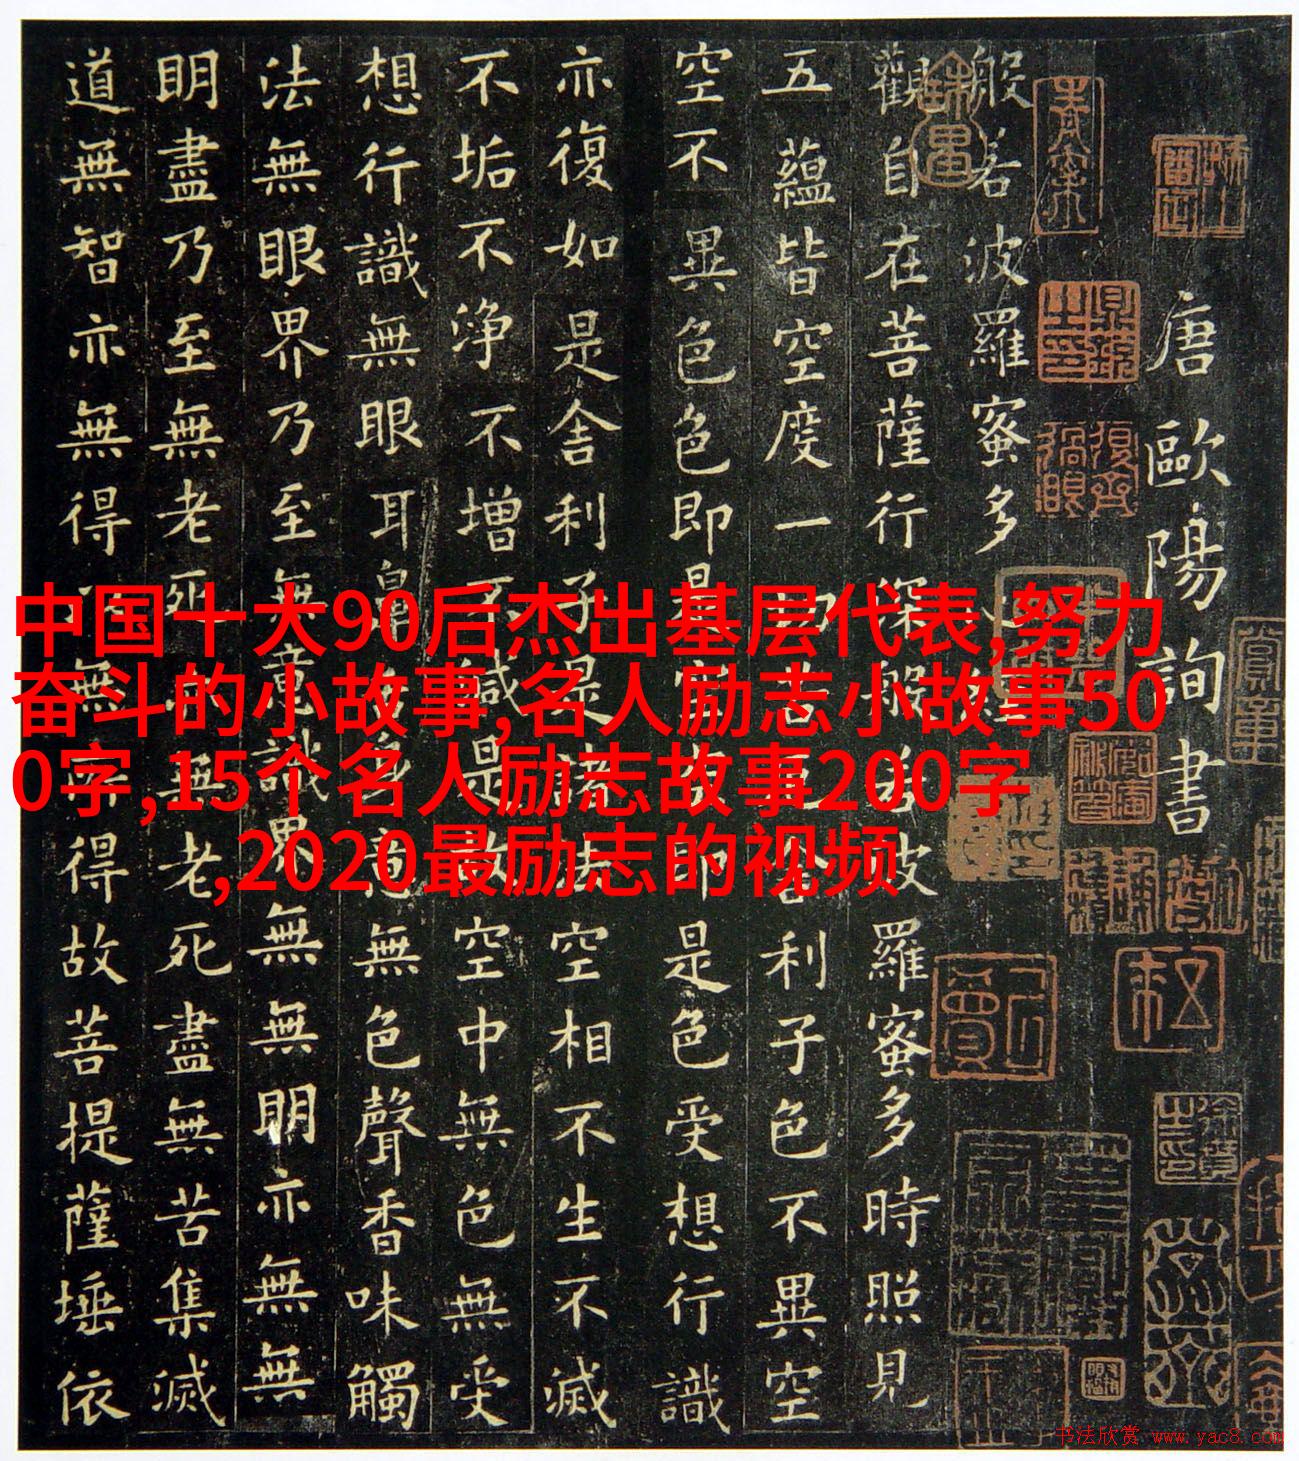 唐歐陽詢書
般若波羅蜜多
觀自在菩薩行深般若波羅蜜多時照見
五蘊皆空度一切苦厄舍利子色不異空
空不異色色即是空空即是色受想行識
亦復如是舍利子是諸法空相不生不滅
不垢不淨不增不減是故空中無色無受
想行識無眼耳鼻舌身意無色聲香味觸
法無眼界乃至無意識界無無明亦無無
明盡乃至無老死亦無老死盡無苦集滅
道無智亦無得以無所得故菩提薩埵依
中国十大90后杰出基层代表,努力
奋斗的小故事,名人励志小故事50
0字,15个名人励志故事200字
,2020最励志的视频
书法欣赏 www.yac8.com